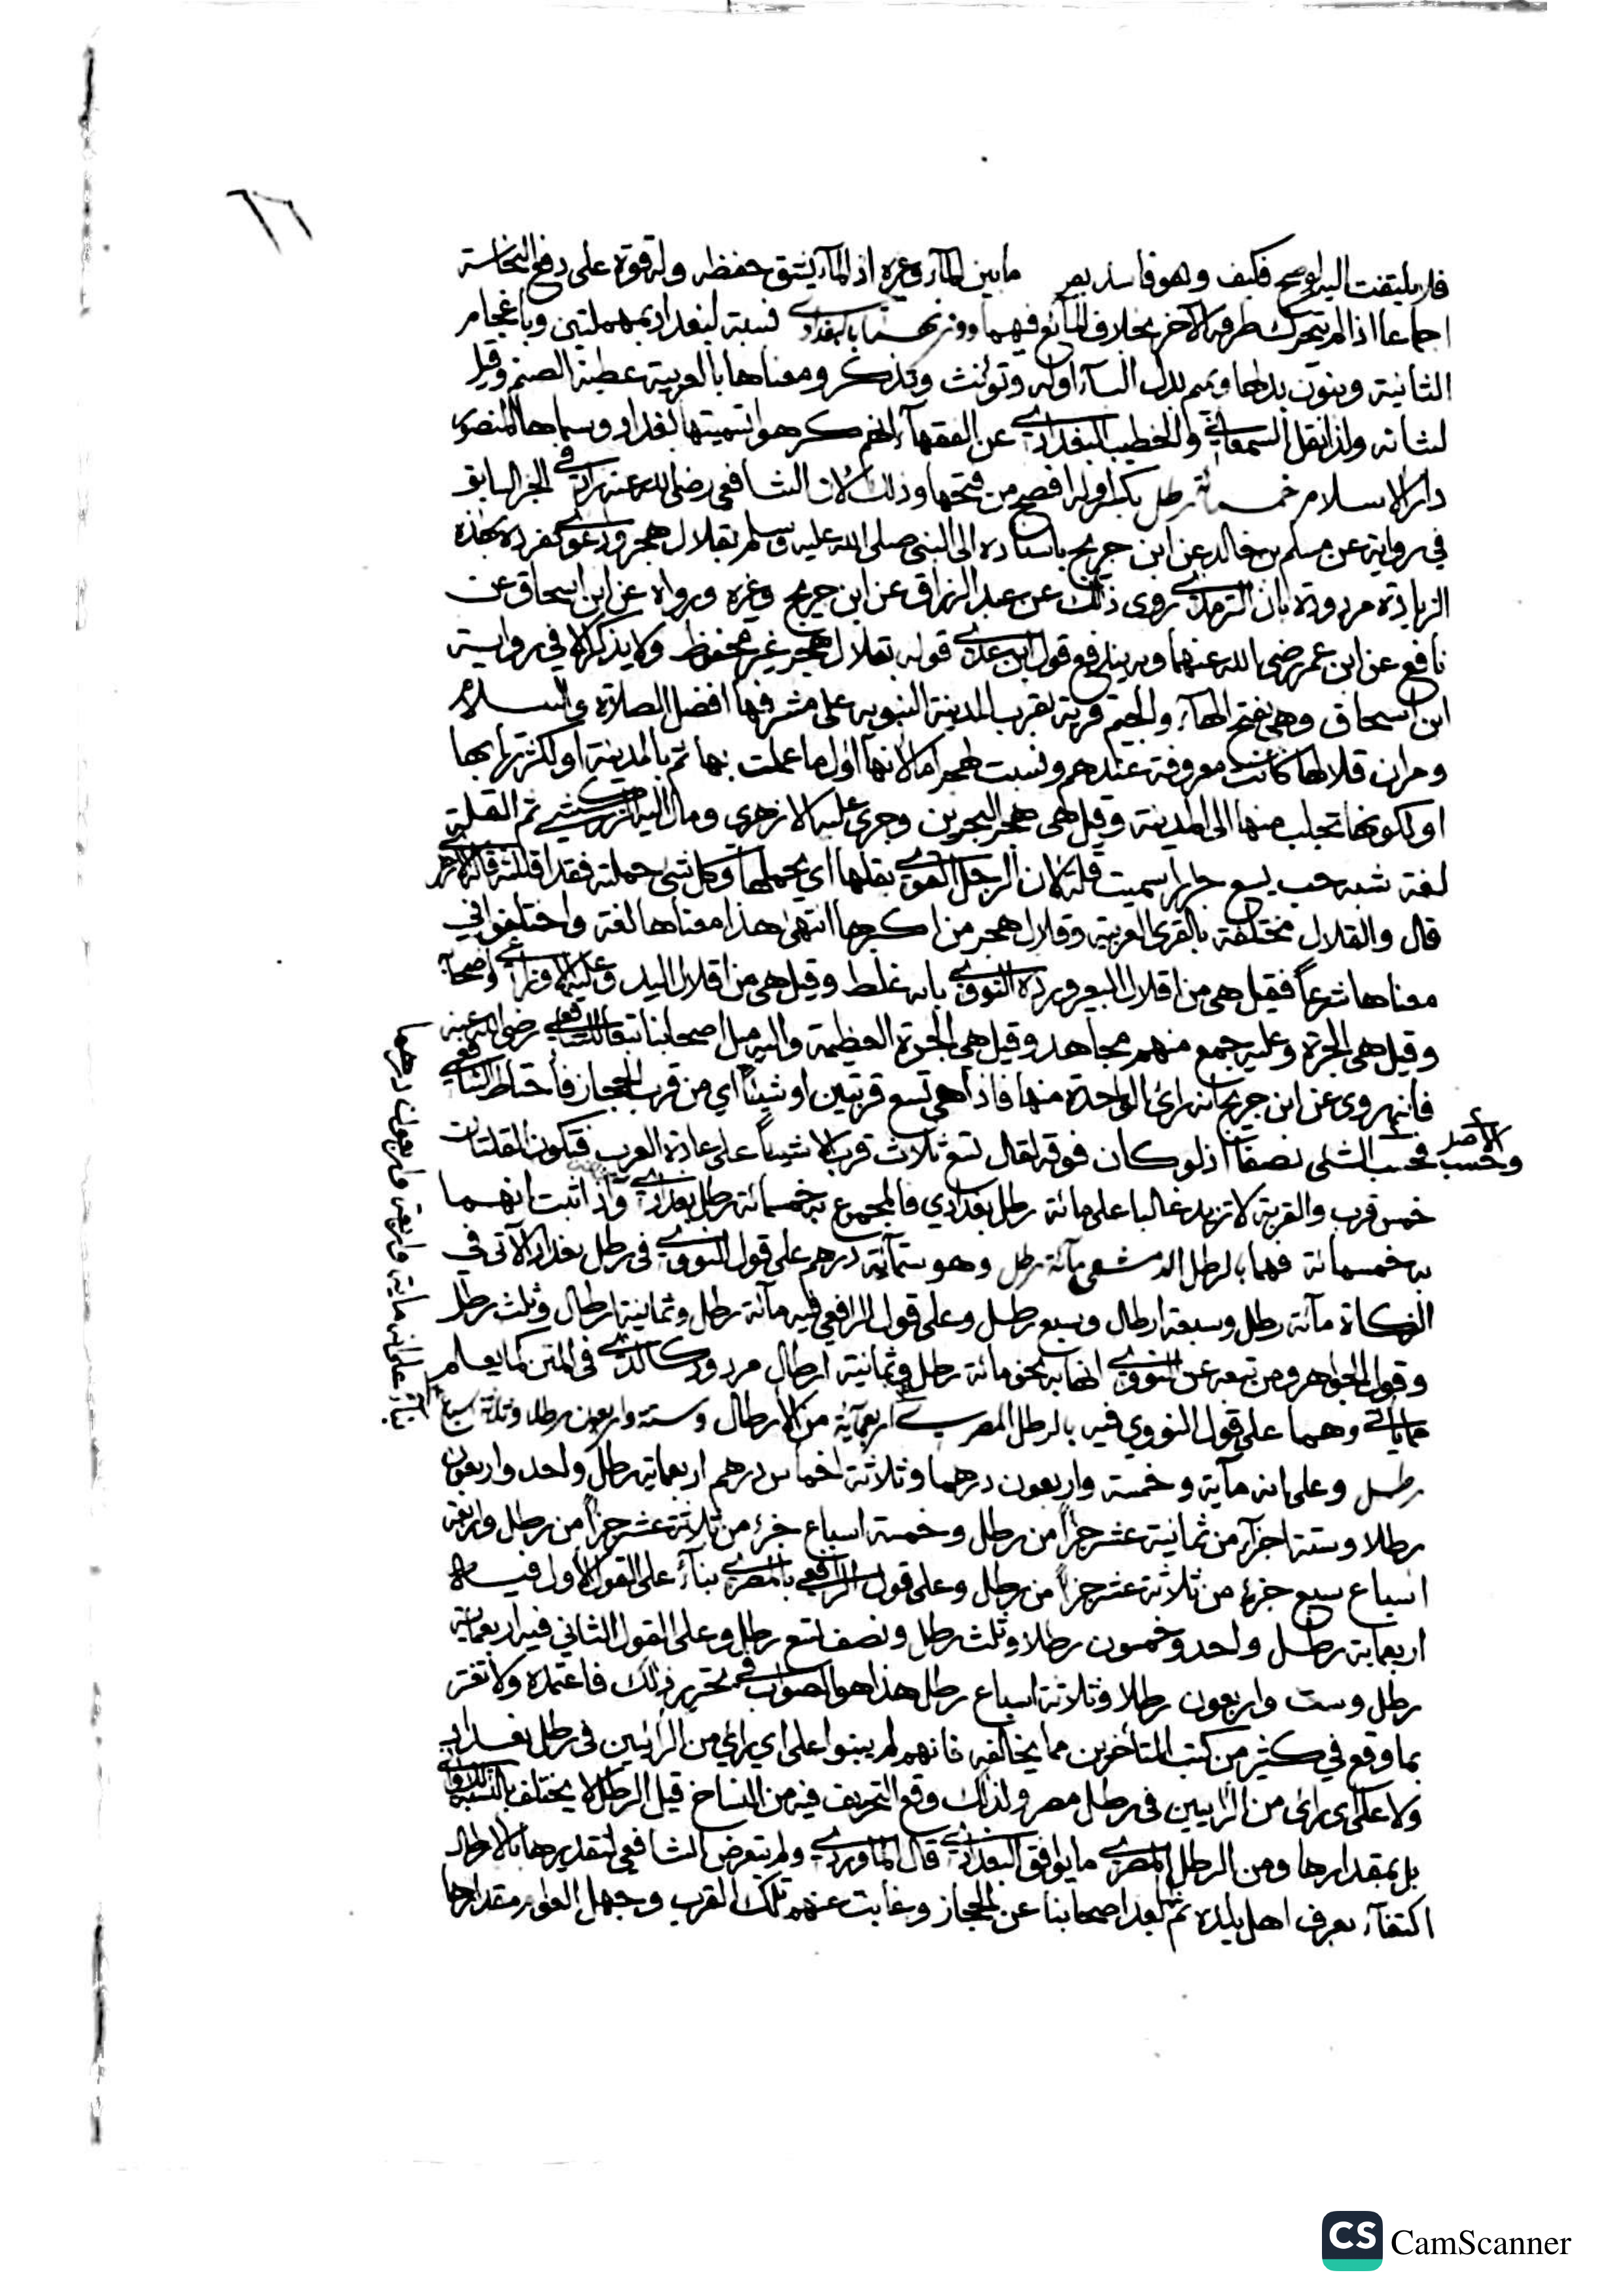 ٦٦
فلا يلتفت اليه لو صح فكيف وهو فاسد بعد ما بين الماء وغيره اذ الماء يشق حفظه وله قوة على دفع النجاسة
اجماعا اذا لم يتحرك طرفه الآخر بخلاف المائع فيهما ووزنهما بالبغدادي نسبة لبغداد بمهملتين وباعجام
الثانية وبنون بدلها وميم بدل الباء اوله وتؤنث وتذكر ومعناها بالعربية عطية الصنم وقيل
لشانه ولذا نقل السمعاني والخطيب البغدادي عن الفقهاء انهم كرهوا تسميتها بغداد وسماها المنصور
دار الاسلام خمسمائة رطل بكسر اوله افصح من فتحها وذلك لان الشافعي رضي الله عنه زاد في الخبر السابق
في رواية عن مسلم بن خالد عن ابن جريج باسناده الى النبي صلى الله عليه وسلم بقلال هجر ودعوى تفرده بهذه
الزيادة مردودة بان الترمذي روى ذلك عن عبد الرزاق عن ابن جريج وغيره ورواه عن ابن اسحاق عن
نافع عن ابن عمر رضي الله عنهما وبه يندفع قول ابن عدي قوله بقلال هجر غير محفوظ ولا يذكر الا في رواية
ابن اسحاق وهي بفتح الهاء والجيم قرية بقرب المدينة النبويه على مشرفها افضل الصلاة والسلام
قلالها كانت معروفة عندهم ونسبت لهجر اما لانها اول ما عملت بها ثم بالمدينة او لكثرتها بها
او لكونها تجلب منها الى المدينة وقيل هي هجر البحرين وجرى عليه الازهري ومال اليه الزركشي ثم القلة
لغة شبه حب يسع جرارا سميت قلة لان الرجل القوي يقلها اي يحملها وكل شئ حملته فقد اقللته قاله الازهري
قال والقلال مختلفة بالقرى العربية وقلال هجر من اكبرها انتهى هذا معناها لغة واختلفوا في
معناها شرعا فقيل هي من اقلال البعير ورده النووي بانه غلط وقيل هي من اقلال اليد وعليه الاوزاعي واصحابه
وقيل هي الجرة وعليه جمع منهم مجاهد وقيل هي الجرة العظيمة واليه ميل اصحابنا تبعا للشافعي رضي الله عنه
فانه روى عن ابن جريج انه راى الواحدة منها فاذا هي تسع قربتين او شيئا اي من قرب الحجاز فأحتاط الشافعي
فحسب الشئ نصفا اذ لو كان فوقه لقال تسع ثلاث قرب الا شيئا على عادة العرب فتكون القلتان
الاصل وحسب
خمس قرب والقربة لا تزيد غالبا على مائة رطل بغدادي فالمجموع به خمسمائة رطل بغدادي واذا ثبت انهما
به خمسمائة فهما بالرطل الدمشقي مائة رطل وهو ستمائة درهم على قول النووي في رطل بغداد الآتي في
الزكاة مائة رطل وسبعة ارطال وسبع رطل وعلى قول الرافعي فيه مائة رطل وثمانية ارطال وثلث رطل
وقول الجواهر ومن تبعه عن النووي انها به نحو مائة رطل وثمانية ارطال مردود كالذي في المتن كما يعلم
مما ياتي وهما على قول النووي فيه بالرطل المصري اربعمائة من الارطال وستة واربعون رطلا وثلاثة اسباع
رطل وعلى انه مائة وخمسة واربعون درهما وثلاثة اخماس درهم اربعمائة رطل واحد واربعون
رطلا وستة اجزاء من ثمانية عشر جزأ من رطل وخمسة اسباع جزء من ثلاثة عشر جزأ من رطل واربعة
اسباع سبع جزء من ثلاثة عشر جزأ من رطل وعلى قول الرافعي بالمصري بناء على القول الاول فيه
اربعمائة رطل واحد وخمسون رطلا وثلث رطل ونصف تسع رطل وعلى القول الثاني فيه اربعمائة
رطل وست واربعون رطلا وثلاثة اسباع رطل هذا هو الصواب في تحرير ذلك فاعتمده ولا تغتر
بما وقع في كثير من كتب المتأخرين مما يخالفه فانهم لم يبنوا على اي رأي من الرأيين في رطل بغداد
ولا على اي رأى من الرأيين في رطل مصر ولذلك وقع التحريف فيه من النساخ قيل الرطل لا يختلف بالنسبة
بل بمقدارها ومن الرطل المصري ما يوافق البغدادي قال الماوردي ولم يتعرض الشافعي لتقديرها بالارطال
اكتفاء بعرف اهل بلده ثم لما بعد اصحابنا عن الحجاز وغابت عنهم تلك القرب وجهل العوام مقدارها
CS CamScanner